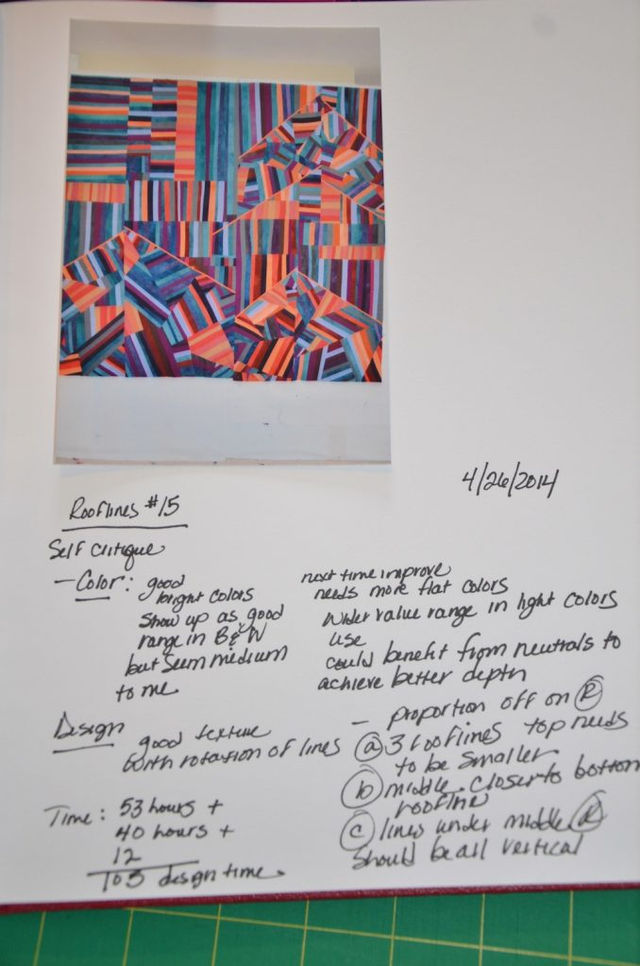 4/26/2014
Rooflines #15
Self Critique
- Color: good
bright colors
show up as good
range in B&W
but seem medium
to me.
next time improve
needs more flat colors
wider value range in light colors
use
could benefit from neutrals to
achieve better depth
Design
good texture
with rotation of lines
- proportion off on R
a 3 rooflines top needs
to be smaller
b middle closer to bottom
roofline
c lines under middle R
should be all vertical
Time: 53 hours +
40 hours +
12
105 design time.